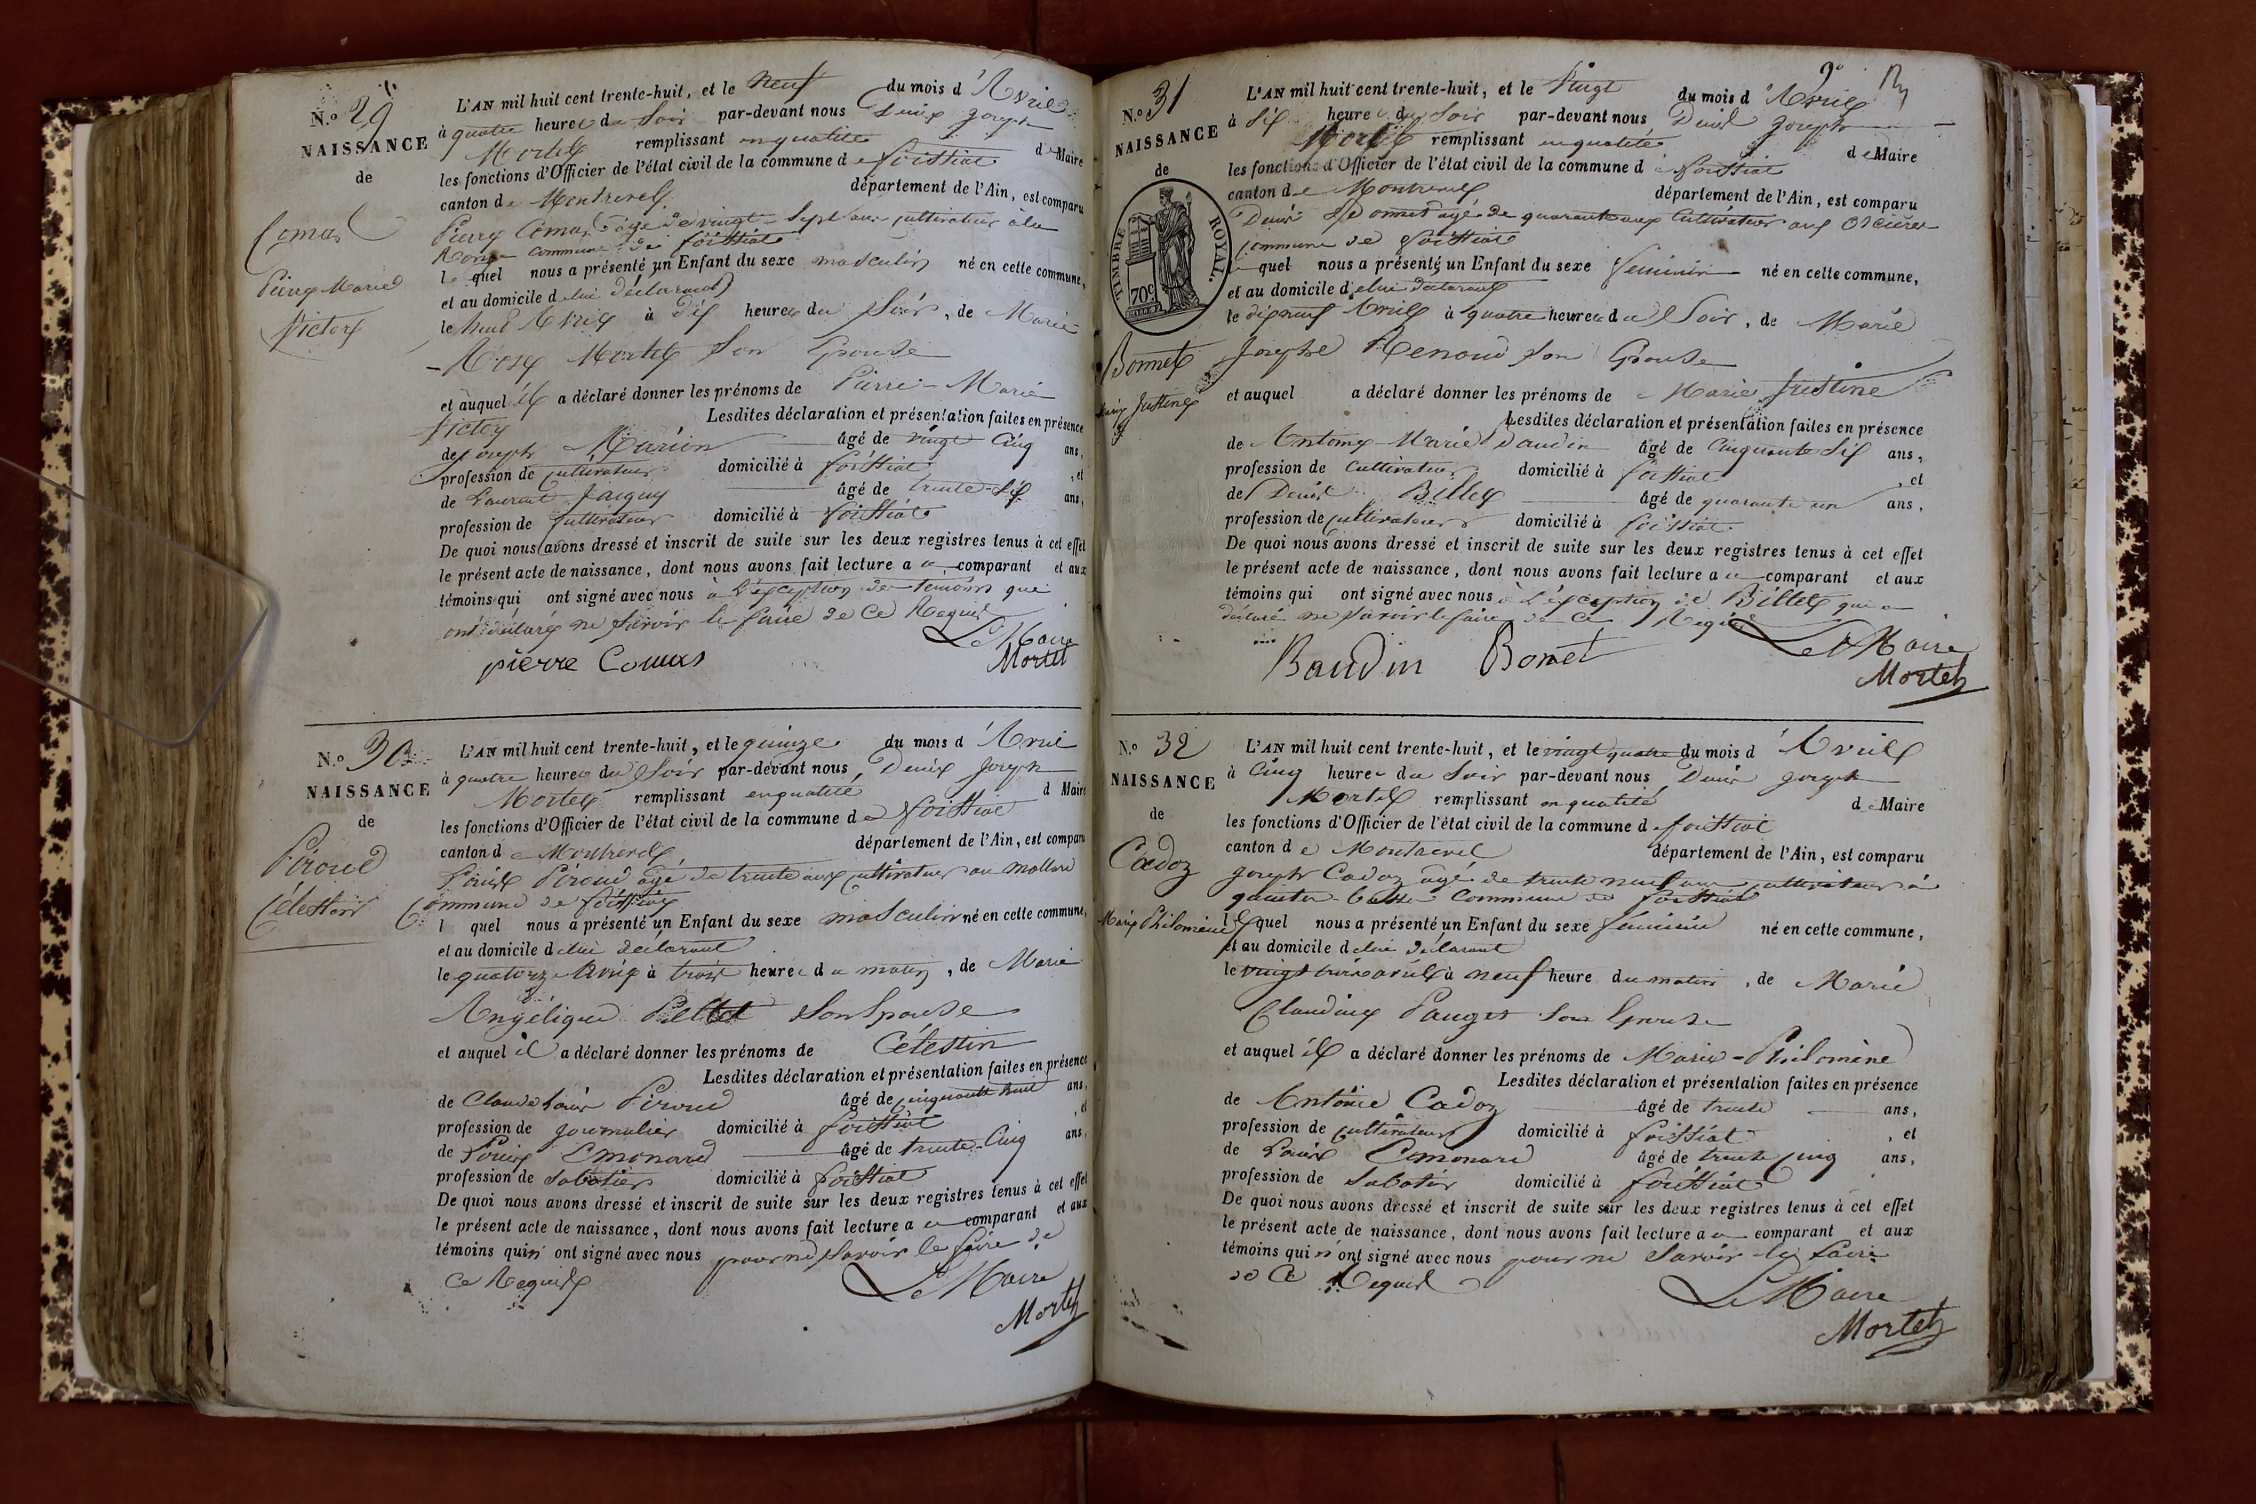 N.o 29
NAISSANCE
de
Comas
Pierre Marie
Victor
L'AN mil huit cent trente-huit, et le neuf du mois d'Avril
à quatre heures du Soir par-devant nous Denis Joseph
Mortel remplissant en qualité de Maire
les fonctions d'Officier de l'état civil de la commune de foissiat
canton de Montrevel département de l'Ain, est comparu
Pierre Comas âgé de vingt-sept ans cultivateur à la
commune de foissiat
lequel nous a présenté un Enfant du sexe masculin né en cette commune,
et au domicile de lui déclarant
le huit Avril à dix heures du Soir, de Marie
Rose Mortel son Epouse
et auquel il a déclaré donner les prénoms de Pierre-Marie
Victor Lesdites déclaration et présentation faites en présence
de joseph Marion âgé de vingt cinq ans,
profession de cultivateur domicilié à foissiat, et
de Laurent Jacquy âgé de trente-six ans,
profession de cultivateur domicilié à foissiat
De quoi nous avons dressé et inscrit de suite sur les deux registres tenus à cet effet
le présent acte de naissance, dont nous avons fait lecture au comparant et aux
témoins qui ont signé avec nous à l'exception des témoins qui
ont déclaré ne savoir le faire de ce Requis
Le Maire
pierre Comas Mortel
N.o 30
NAISSANCE
de
Piroud
Célestin
L'AN mil huit cent trente-huit, et le quinze du mois d'Avril
à quatre heures du Soir par-devant nous, Denis Joseph
Mortel remplissant en qualité d Maire
les fonctions d'Officier de l'état civil de la commune de foissiat
canton de Montrevel département de l'Ain, est comparu
Louis Piroud âgé de trente ans cultivateur au mollard
Commune de foissiat
l quel nous a présenté un Enfant du sexe masculin né en cette commune,
et au domicile de lui déclarant
le quatorze Avril à trois heures du matin, de Marie
Angélique Pillet son Epouse
et auquel il a déclaré donner les prénoms de Célestin
Lesdites déclaration et présentation faites en présence
de Claude Louis Piroud âgé de cinquante huit ans,
profession de journalier domicilié à foissiat, et
de Louis Emonard âgé de trente-Cinq ans,
profession de sabotier domicilié à foissiat
De quoi nous avons dressé et inscrit de suite sur les deux registres tenus à cet effet
le présent acte de naissance, dont nous avons fait lecture au comparant et aux
témoins qui n'ont signé avec nous pour ne savoir le faire de
ce Requis
Le Maire
Mortel
N.o 31
NAISSANCE
de
TIMBRE ROYAL.
70c
Bonnet
Marie Justine
9e
L'AN mil huit cent trente-huit, et le Vingt du mois d'Avril
à Six heures du Soir par-devant nous Denis Joseph
Mortel remplissant en qualité de Maire
les fonctions d'Officier de l'état civil de la commune de foissiat
canton de Montrevel département de l'Ain, est comparu
Denis Bonnet âgé de quarante ans Cultivateur aux
commune de foissiat
le quel nous a présenté un Enfant du sexe féminin né en cette commune,
et au domicile de lui déclarant
le dix neuf Avril à quatre heures du Soir, de Marie
Josephe Renoud son Epouse
et auquel a déclaré donner les prénoms de Marie Justine
Lesdites déclaration et présentation faites en présence
de Antoine-Marie Baudin âgé de Cinquante Six ans,
profession de cultivateur domicilié à foissiat, et
de Denis Billet âgé de quarante un ans,
profession de cultivateur domicilié à foissiat
De quoi nous avons dressé et inscrit de suite sur les deux registres tenus à cet effet
le présent acte de naissance, dont nous avons fait lecture au comparant et aux
témoins qui ont signé avec nous à l'exception de Billet qui a
déclaré ne savoir le faire de ce Requis
Le Maire
Baudin Bonet Mortel
N.o 32
NAISSANCE
de
Cadoz
Marie Philomène
L'AN mil huit cent trente-huit, et le vingt quatre du mois d'Avril
à Cinq heures du Soir par-devant nous Denis Joseph
Mortel remplissant en qualité de Maire
les fonctions d'Officier de l'état civil de la commune de foissiat
canton de Montrevel département de l'Ain, est comparu
joseph Cadoz âgé de trente neuf ans cultivateur à
Commune de foissiat
le quel nous a présenté un Enfant du sexe féminin né en cette commune,
et au domicile de lui déclarant
le vingt trois avril à neuf heure du matin, de Marie
Claudine Pauget son Epouse
et auquel il a déclaré donner les prénoms de Marie-Philomène
Lesdites déclaration et présentation faites en présence
de Antoine Cadoz âgé de trente ans,
profession de cultivateur domicilié à foissiat, et
de Louis Emonard âgé de trente cinq ans,
profession de sabotier domicilié à foissiat
De quoi nous avons dressé et inscrit de suite sur les deux registres tenus à cet effet
le présent acte de naissance, dont nous avons fait lecture au comparant et aux
témoins qui n'ont signé avec nous pour ne savoir le faire
de ce Requis
Le Maire
Mortel